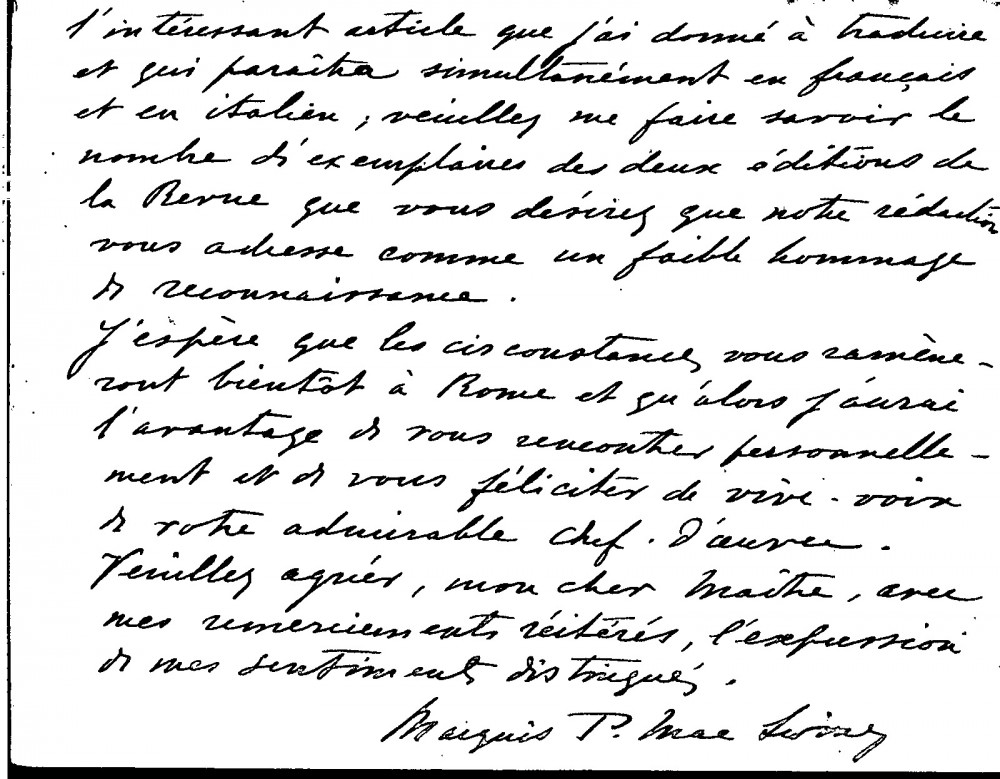 l'intéressant article que j'ai donné à traduire
et qui paraîtra simultanément en français
et en italien ; veuillez me faire savoir le
nombre d'exemplaires des deux éditions de
la Revue que vous désirez que notre rédaction
vous adresse comme un faible hommage
de reconnaissance.
J'espère que les circonstances vous ramène-
ront bientôt à Rome et qu'alors j'aurai
l'avantage de vous rencontrer personnelle-
ment et de vous féliciter de vive-voix
de votre admirable chef-d'œuvre.
Veuillez agréer, mon cher Maître, avec
mes remerciements réitérés, l'expression
de mes sentiments distingués.
Marquis P. Mac